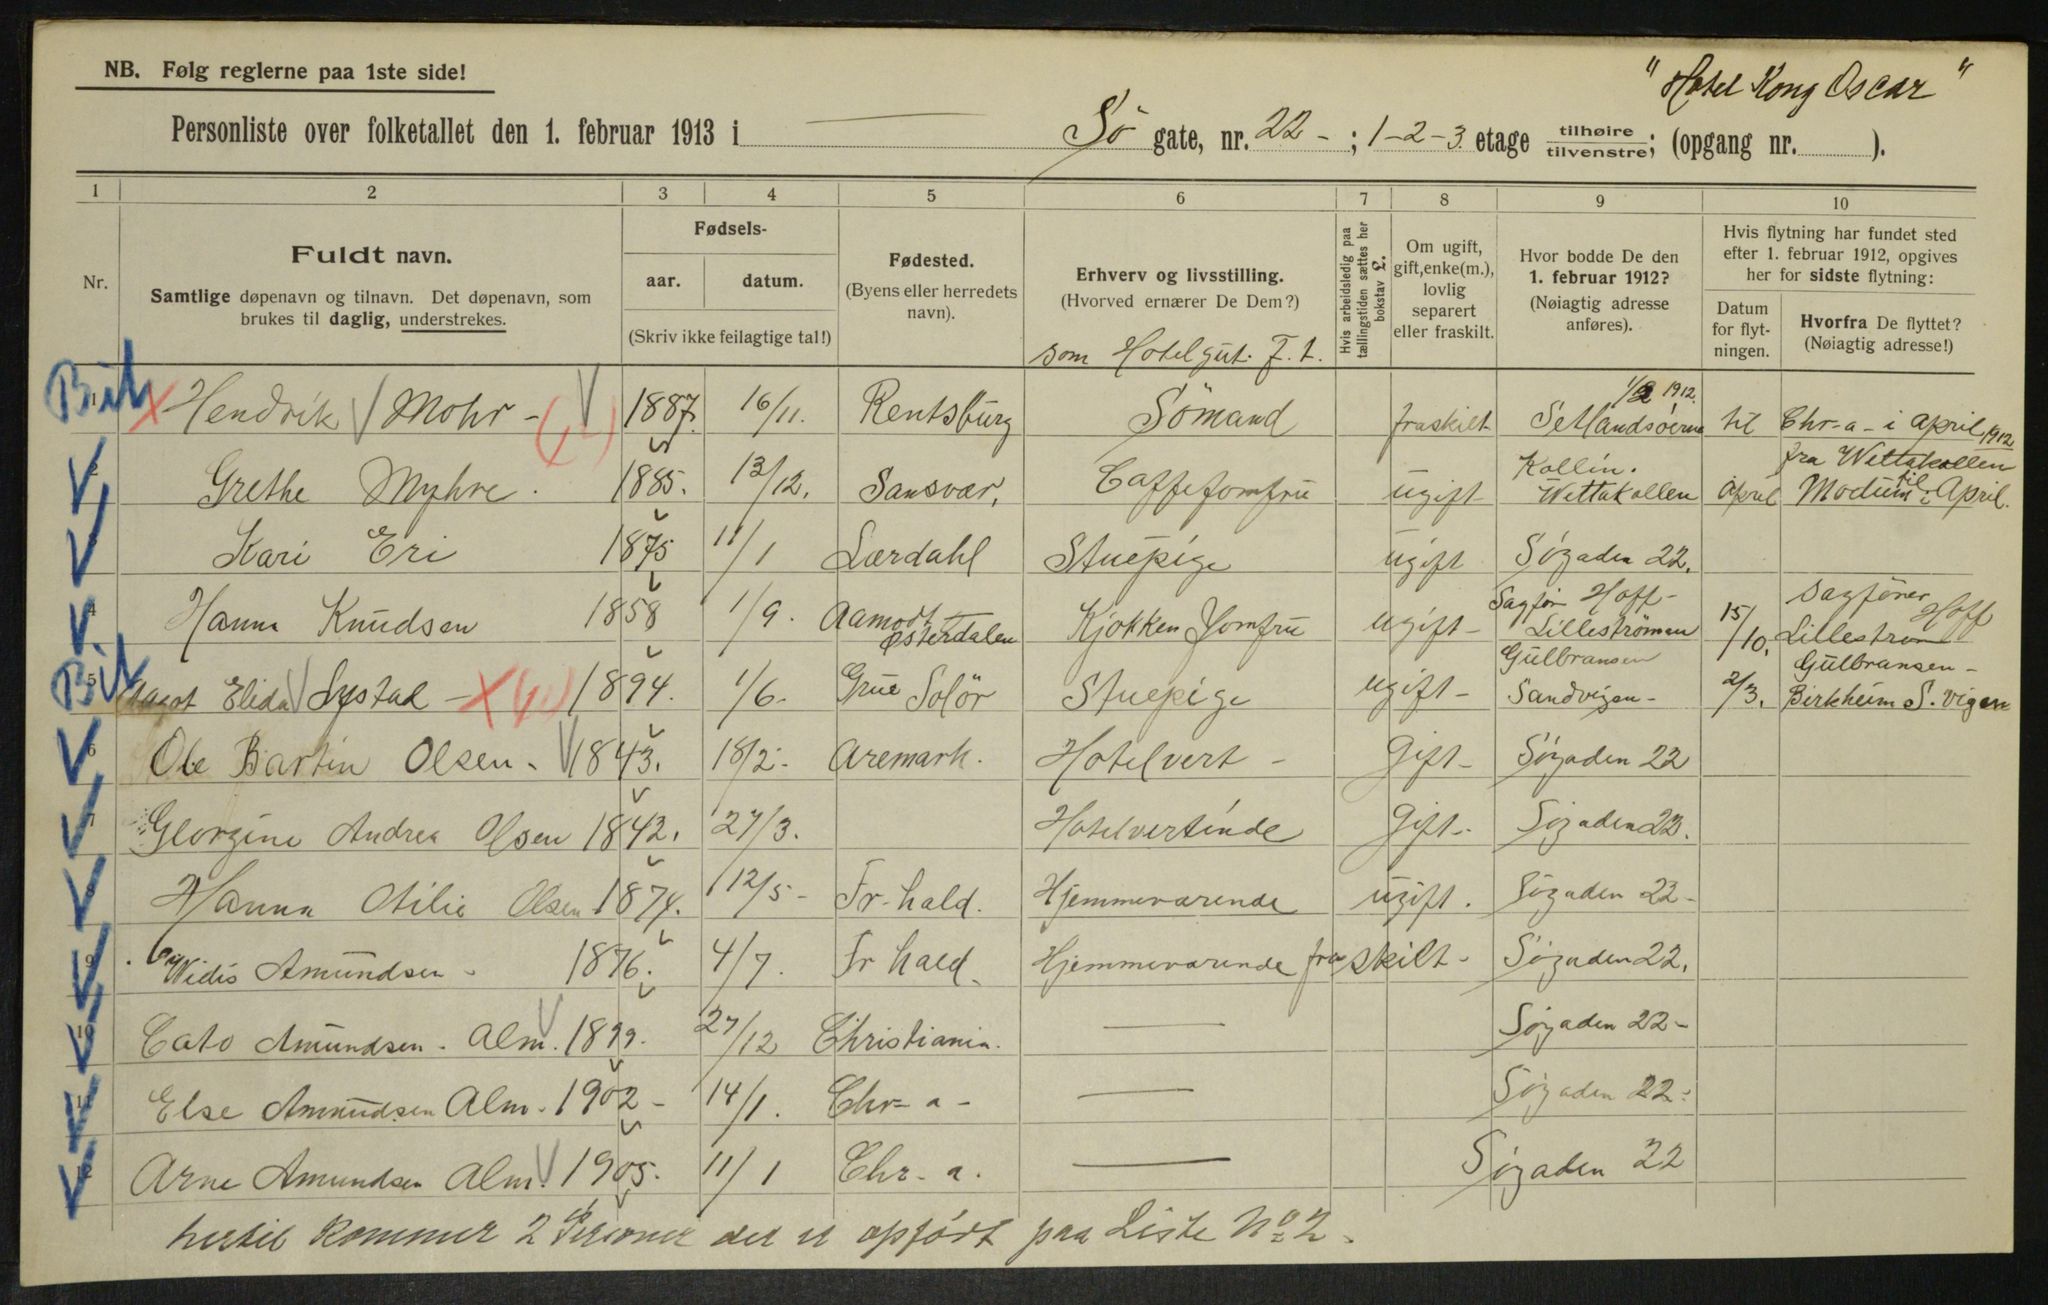 "Hotel Kong Oscar"
NB. Følg reglerne paa 1ste side!
Personliste over folketallet den 1. februar 1913 i Sö gate, nr. 22 - ; 1-2-3 etage tilhøire tilvenstre; (opgang nr. ).
1 2 3 4 5 6 7 8 9 10
Nr.
Fuldt navn.
Samtlige døpenavn og tilnavn. Det døpenavn, som
brukes til daglig, understrekes.
Fødsels-
aar. datum.
(Skriv ikke feilagtige tal!)
Fødested.
(Byens eller herredets
navn).
Erhverv og livsstilling.
(Hvorved ernærer De Dem?)
som Hotelgut. F. t.
Hvis arbeidsledig paa
tællingstiden sættes her
bokstav L.
Om ugift,
gift, enke(m.),
lovlig
separert
eller fraskilt.
Hvor bodde De den
1. februar 1912?
(Nøiagtig adresse
anføres).
Hvis flytning har fundet sted
efter 1. februar 1912, opgives
her for sidste flytning:
Datum
for flyt-
ningen.
Hvorfra De flyttet?
(Nøiagtig adresse!)
1 Hendrik Mohr - 1887. 16/11. Rentsburg Sömand fraskilt 1/2 1912. Setlandsöerne til Chr-a- i April 1912
2 Grethe Myhre. 1885. 13/12. Sansvær. Caffejomfru ugift Kollin. Wettakollen April fra Wettakollen til Modum i April.
3 Kari Eri 1875 11/1 Lærdahl Stuepige ugift Søgaden 22.
4 Hanna Knudsen 1858 1/9. Aamodt Østerdalen Kjøkken Jomfru ugift - Sagför Hoff - Lilleströmmen 15/10. Sagförer Hoff Lillestrom
5 Elida Systad - 1894. 1/6. Grue Solör Stuepige ugift - Gulbransen Sandvigen - 2/3. Gulbransen - Birkheim S. vigen
6 Ole Bartin Olsen - 1843. 18/2. Aremark. Hotelvert - Gift - Søgaden 22
7 Georgine Andrea Olsen 1842. 27/3. Hotelvertinde Gift - Søgaden 22.
8 Hanna Otilie Olsen 1874. 12/5 - Fr-hald. Hjemmeværende ugift. Søgaden 22 -
9 Widis Amundsen - 1876. 4/7. Fr hald. Hjemmeværende fraskilt - Søgaden 22.
10 Cato Amundsen. Alm. 1899. 27/12 Christiania. Søgaden 22 -
11 Else Amundsen Alm. 1902 - 14/1. Chr-a - Søgaden 22 -
12 Arne Amundsen Alm. 1905. 11/1 Chr-a. Søgaden 22
hertil kommer 2 Personer der er opført paa Liste No 2.